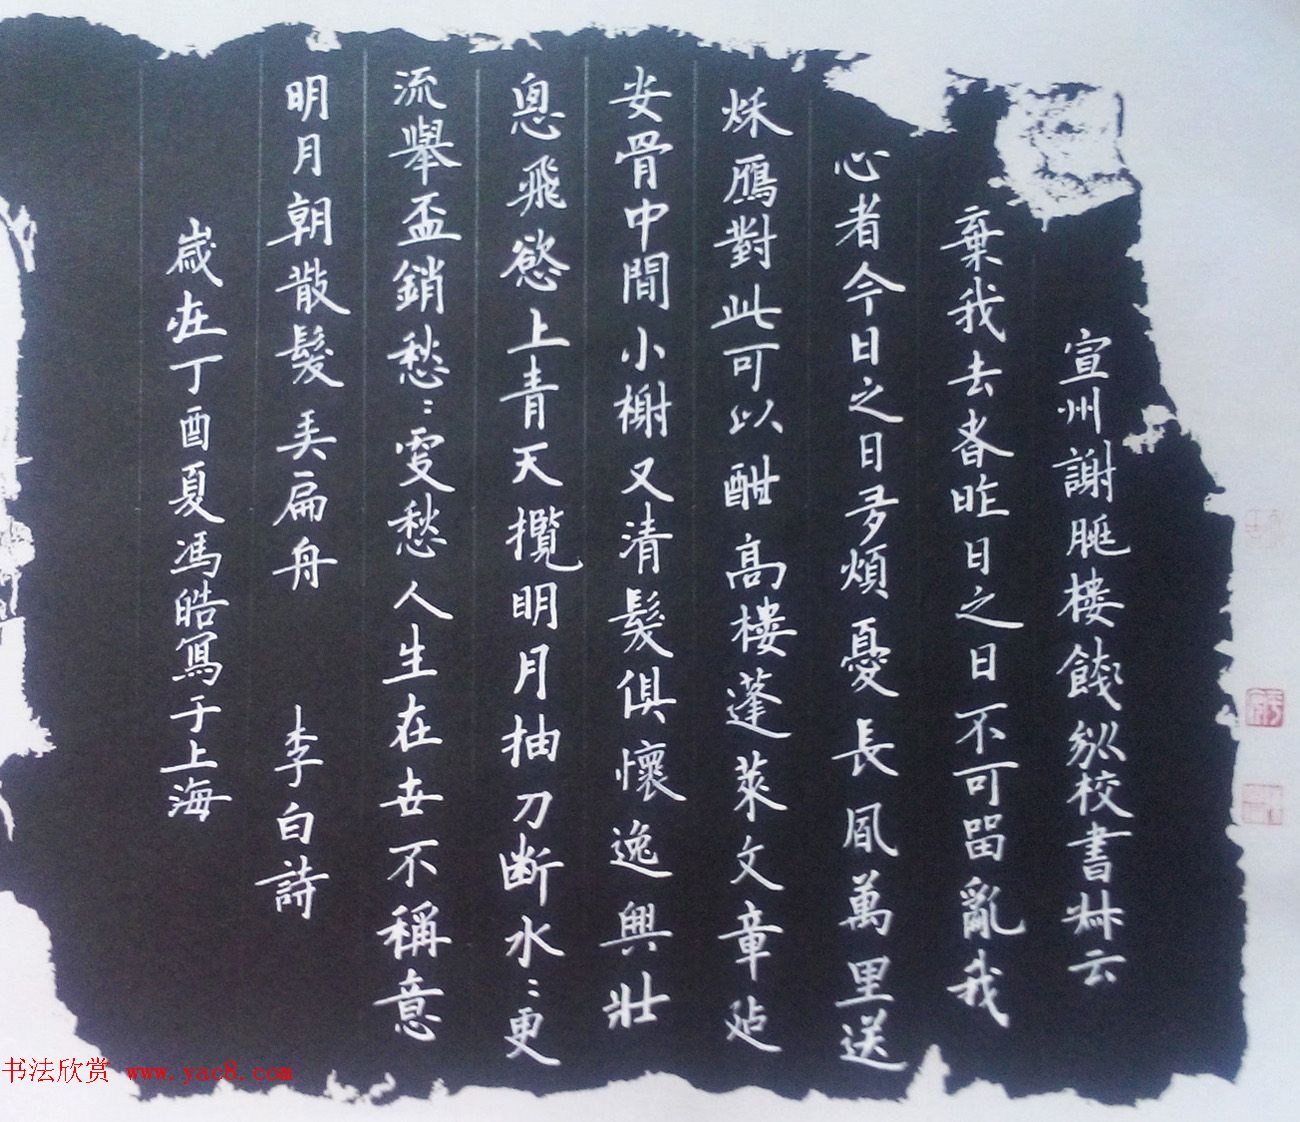 宣州謝朓樓餞別校書叔云
棄我去者昨日之日不可留亂我
心者今日之日多煩憂長風萬里送
秌鴈對此可以酣高樓蓬萊文章
安骨中間小榭又清髮俱懷逸興壯
思飛慾上青天攬明月抽刀斷水〻更
流舉盃銷愁〻更愁人生在世不稱意
明月朝散髮弄扁舟 李白詩
歲在丁酉夏馮皓寫于上海
书法欣赏 www.yac8.com